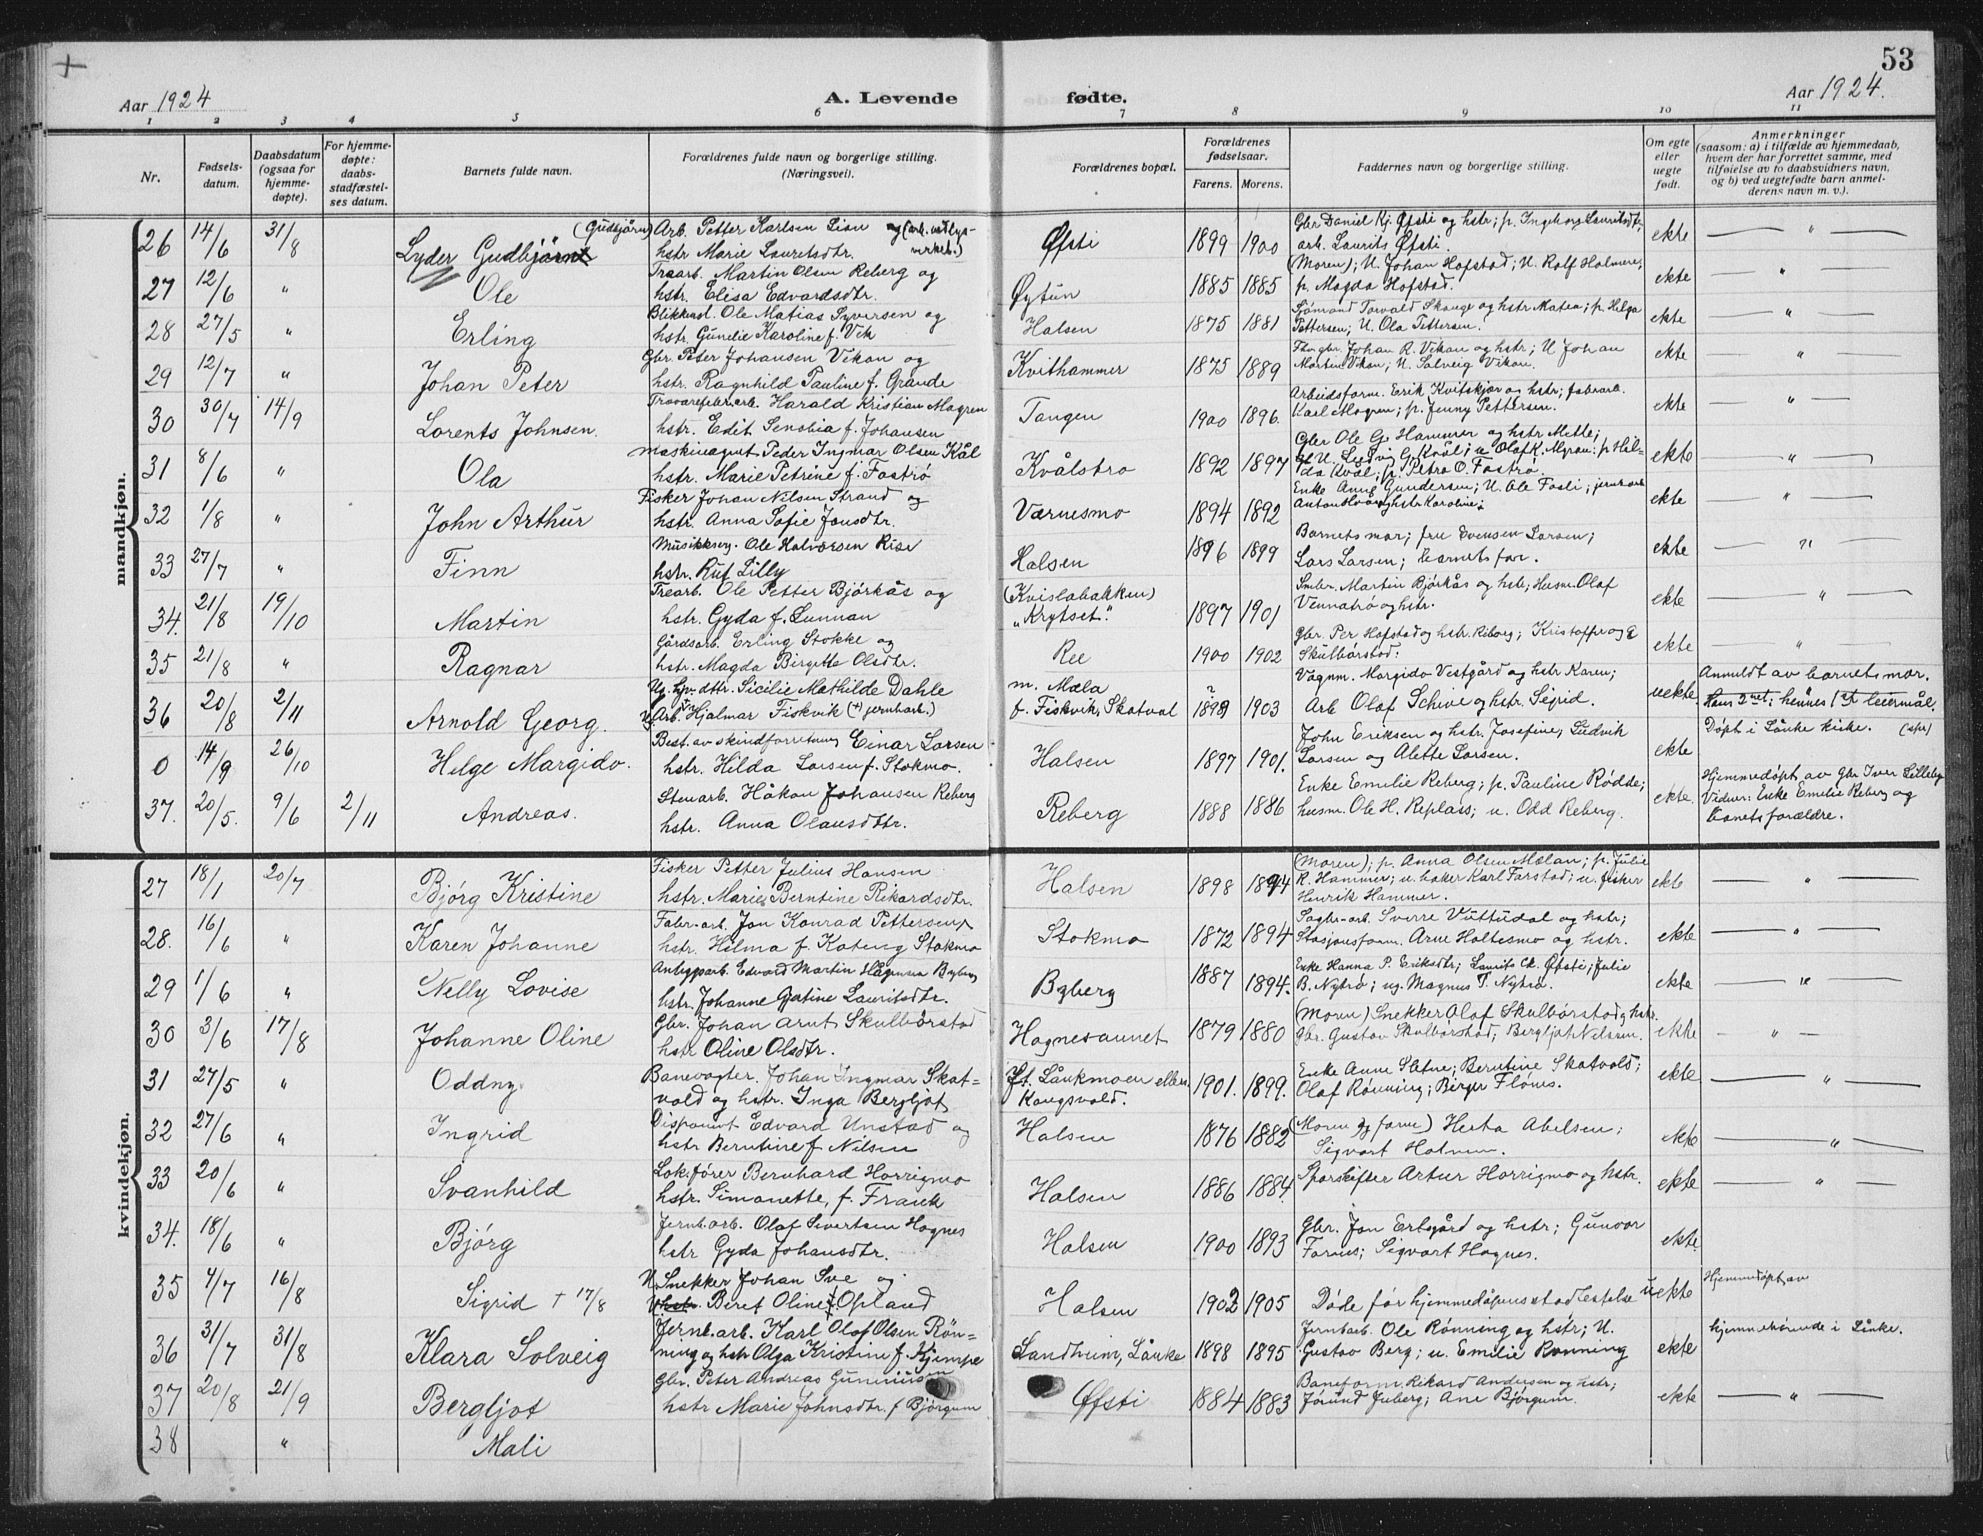 53
Aar 1924
A. Levende
fødte.
Aar 1924.
1 2 3 4 5 6 7 8 9 10 11
Nr.
Fødsels-
datum.
Daabsdatum
(ogsaa for
hjemme-
døpte).
For hjemme-
døpte:
daabs-
stadfæstel-
ses datum.
Barnets fulde navn.
Forældrenes fulde navn og borgerlige stilling.
(Næringsvei).
Forældrenes bopæl.
Forældrenes
fødselsaar.
Farens. Morens.
Faddernes navn og borgerlige stilling.
Om egte
eller
uegte
født.
Anmerkninger
(saasom: a) i tilfælde av hjemmedaab,
hvem der har forrettet samme, med
tilføielse av to daabsvidners navn,
og b) ved uegtefødte barn anmel-
derens navn m. v.).
mandkjøn.
26 14/6 31/8 Lyder Gudbjørnt (Gudbjørn) Arb. Petter Karlsen Lian og
hstr Marie Lauritsdtr. Øfsti 1899 1900 Gbr Daniel Kj. Øfsti og hstr; p. Ingeborg Lauritsdtr,
arb. Laurits Øfsti. ekte — " —
27 12/6 " Ole Træarb. Martin Olsen Reberg og
hstr. Elisa Edvardsdtr. Øytun 1885 1885 (Moren); U. Johan Hofstad; U. Rolf Holmere,
p. Magda Hofstad. ekte — " —
28 27/5 " Erling Blikkensl. Ole Matias Syversen og
hstr. Gunelie Karoline f. Vek Halsen 1875 1881 Sjømand Torvald Skauge og hstr Matea; p. Helga
Pettersen; U. Ola Pettersen. ekte — " —
29 12/7 " Johan Peter Gbr. Peter Johansen Vikan og
hstr. Ragnhild Pauline f. Grande Kvithammer 1875 1889 Johan R. Vikan og hstr; U Johan
Martin Vikan; U. Solveig Vikan. ekte — " —
30 30/7 14/9 Lorents Johnsen. Harald Kristian Mogren
hstr. Edit Senobia f. Johansen Tangen 1900 1896. Arbeidsform. Erik Kvitskjær og hstr; fabrarb.
Karl Mogren; p. Jenny Pettersen. ekte — " —
31 8/6 " Ola Maskinagent Peder Ingmar Olsen Kål
hstr. Marie Petrine f. Fastrø Kvålstrø 1892 1897 Gbr Ole G. Hammer og hstr Mette;
p. Petra O. Fastrø. ekte — " —
32 1/8 " John Arthur Fisker Johan Nilsen Strand og
hstr. Anna Sofie Jonsdtr. Værnesmo 1894 1892 Enke Anne Gundersen; U. Ole Fosli; ekte — " —
33 27/7 " Finn Musikksgj. Ole Halvorsen Risi
hstr. Rut Lilly Halsen 1896 1899 Barnets mor; fru Evensen Larsen;
Lars Larsen; Barnets far. ekte — " —
34. 21/8 19/10 Martin Træarb. Ole Petter Bjørkås og
hstr. Gyda f. Lunnan (Kvislabakken)
„Krytset". 1897 1901 Martin Bjørkås og hstr; Husm. Olaf
Vennatrø og hstr. ekte — " —
35 21/8 " Ragnar Gårdsarb. Erling Stokke og
hstr. Magda Birgitte Olsdtr. Ree 1900 1902 Gbr. Per Hofstad og hstr. Riborg; Kristoffer og E
Skulbørstad: ekte — " —
36 20/8 2/11 Arnold Georg. Ug. Gjv. dttr. Sicilie Mathilde Dahle
Arb. Hjalmar Fiskvik (jernbarb.) m. Mæla
f. Fiskvik, Skatval 1898 1903 Vognm. Margido Vestgård og hstr Karen;
Arb Olaf Schive og hstr Sigrid. uekte Anmeldt av barnets mor.
Hans 2net; hennes 1st leiermål.
0 14/9 26/10 Helge Margido. Best. av skindforretning Einar Larsen
hstr. Hilda Larsen f. Stokmo. Halsen 1897 1901. John Eriksen og hstr. Josefine; Ludvik
Larsen og Alette Larsen. ekte Døpt i Lånke kirke.
37. 20/5. 9/6 2/11 Andreas. Stenarb. Håkon Johansen Reberg
hstr. Anna Olausdtr. Reberg 1888 1886 Enke Emelie Reberg; p. Pauline Rødde;
husm. Ole H. Replass; u. Odd Reberg. ekte. Hjemmedøpt av Gbr Iver Lilleby
Vidner: Enke Emelie Reberg og
barnets forældre.
kvindekjøn.
27 18/1 20/7 Bjørg Kristine Fisker Petter Julius Hansen
hstr. Marie Berntine Rikardsdtr. Halsen 1898 1894 (Moren); p. Anna Olsen Mælan; p. Julie
R. Hammer; u. baker Karl Farstad; u. fisker
Henrik Hammer. ekte — " —
28. 16/6 " Karen Johanne Fabr-arb. Jon Konrad Pettersen
hstr. Hilma f. Kateng Stokmo Stokmo 1872 1894 Sagbr-arb. Sverre Vuttudal og hstr;
Stasjonsform. Arne Holtesmo og hstr. ekte — " —
29 1/6 " Nelly Lovise Anleggsarb. Edvard Martin Hågensen Byberg
hstr. Johanne Gjatine Lauritsdtr. Byberg 1887 1894. Enke Hanna P. Eriksdtr; Laurits Ch. Øfsti; Julie
B. Nytrø; ug. Magnus T. Nytrø. ekte — " —
30 3/6 17/8 Johanne Oline Gbr. Johan Arnt Skulbørstad
hstr Oline Olsdtr. Hognesaunet 1879 1880 (Moren) Snekker Olaf Skulbørstad og hstr.
Gbr. Gustav Skulbørstad; Bergljot Nilsen. ekte — " —
31 27/5 " Oddny. Banevogter. Johan Ingmar Skat-
vold og hstr. Inga Bergljot ft. Lånkmoen eller
Kongsvold. 1901. 1899. Enke Anne Sætne; Berntine Skatvold;
Olaf Rønning; Birger Flønes. ekte — " —
32 27/6 " Ingrid Disponent Edvard Unstad og
hstr Berntine f Nilsen Halsen 1876 1882 (Moren og faren) Herta Abelsen;
Sigvart Halven. ekte — " —
33 20/6 " Svanhild Lok.fører Bernhard Horrigmo
hstr. Simonette, f. Franck Halsen 1886 1884. Sporskifter Artur Horrigmo og hstr. ekte — " —
34. 18/6 " Bjørg Jernb.arb. Olaf Sivertsen Hognes
hstr Gyda Johansdtr. Halsen 1900 1893 Gbr. Jon Ertsgård og hstr; Gunvor
Farnes; Sigvart Hognes. ekte.
35 4/7 16/8 Sigrid + 17/8 U. Snekker Johan Sve og
hstr. Beret Oline f Opland Halsen 1902 1905 Døde før hjemmedåpens stadfestelse uekte Hjemmedøpt av
36 31/7 31/8 Klara Solveig Jernb.arb. Karl Olaf Olsen Røn-
ning og hstr Olga Kristine f. Kjempe Sandheim, Lånke 1898 1895 Jernbarb. Ole Rønning og hstr; U.
Gustav Berg; u. Emilie Rønning ekte hjemmehørende i Lånke.
37 20/8 21/9 Bergljot Gbr. Peter Andreas Gunniusen
hstr Marie Johnsdtr. f Bjørgum Øfsti 1884 1883 Baneform. Rikard Andersen og hstr;
Jørund Juberg; Ane Bjørgum. ekte — " —
38 " Mali